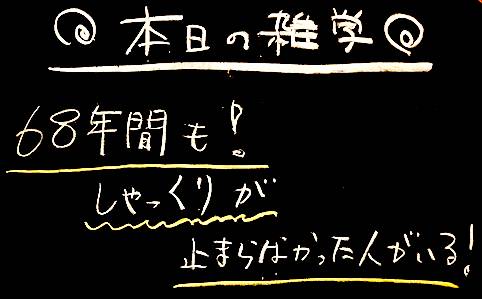 本日の雑学
68年間も!
しゃっくりが
止まらなかった人がいる!